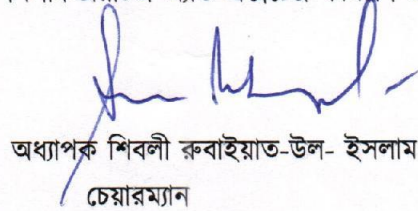 অধ্যাপক শিবলী রুবাইয়াত-উল- ইসলাম
চেয়ারম্যান